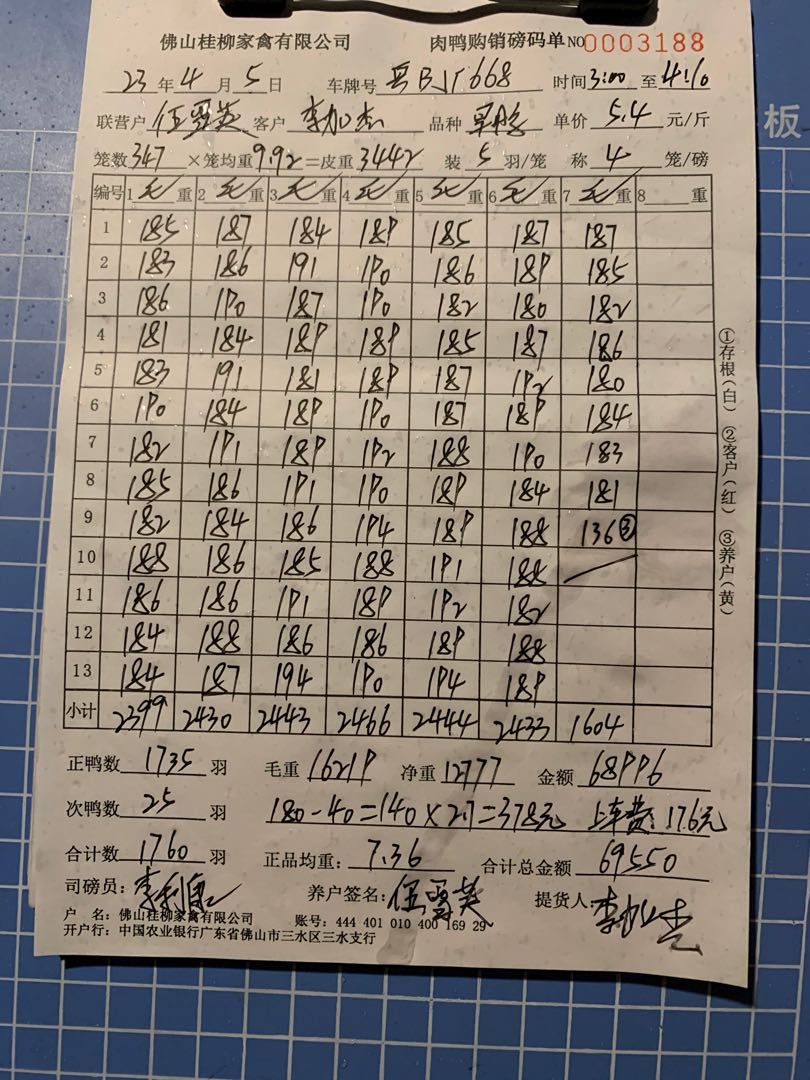 佛山桂柳家禽有限公司 肉鸭购销磅码单 NO0003188
23年4月5日 车牌号 BJT668 时间3:00至4:10
联营户 伍雪英 客户 李加杰 品种 单价 5.4 元/斤
笼数347×笼均重9.92=皮重3442 装5羽/笼 称4笼/磅
编号 1毛重 2毛重 3毛重 4毛重 5毛重 6毛重 7毛重 8 重
1 185 187 184 189 185 187 187
2 183 186 191 190 186 189 185
3 186 190 187 190 182 180 182
4 181 184 189 189 185 187 186
5 183 191 181 189 187 192 180
6 190 184 189 190 187 189 184
7 182 191 189 192 188 190 183
8 185 186 191 190 189 184 181
9 182 184 186 194 189 188 136③
10 188 186 185 188 191 188
11 186 186 191 189 192 182
12 184 188 186 186 189 188
13 184 187 194 190 194 189
小计 2399 2430 2443 2466 2444 2433 1604
①存根(白) ②客户(红) ③养户(黄)
正鸭数 1735 羽 毛重 16219 净重 12777 金额 68996
次鸭数 25 羽 180-40=140×2.7=378元 上车费:176元
合计数 1760 羽 正品均重: 7.36 合计总金额 69550
司磅员: 养户签名: 伍雪英 提货人 李加杰
户 名: 佛山桂柳家禽有限公司 账号: 444 401 010 400 169 29
开户行: 中国农业银行广东省佛山市三水区三水支行
板